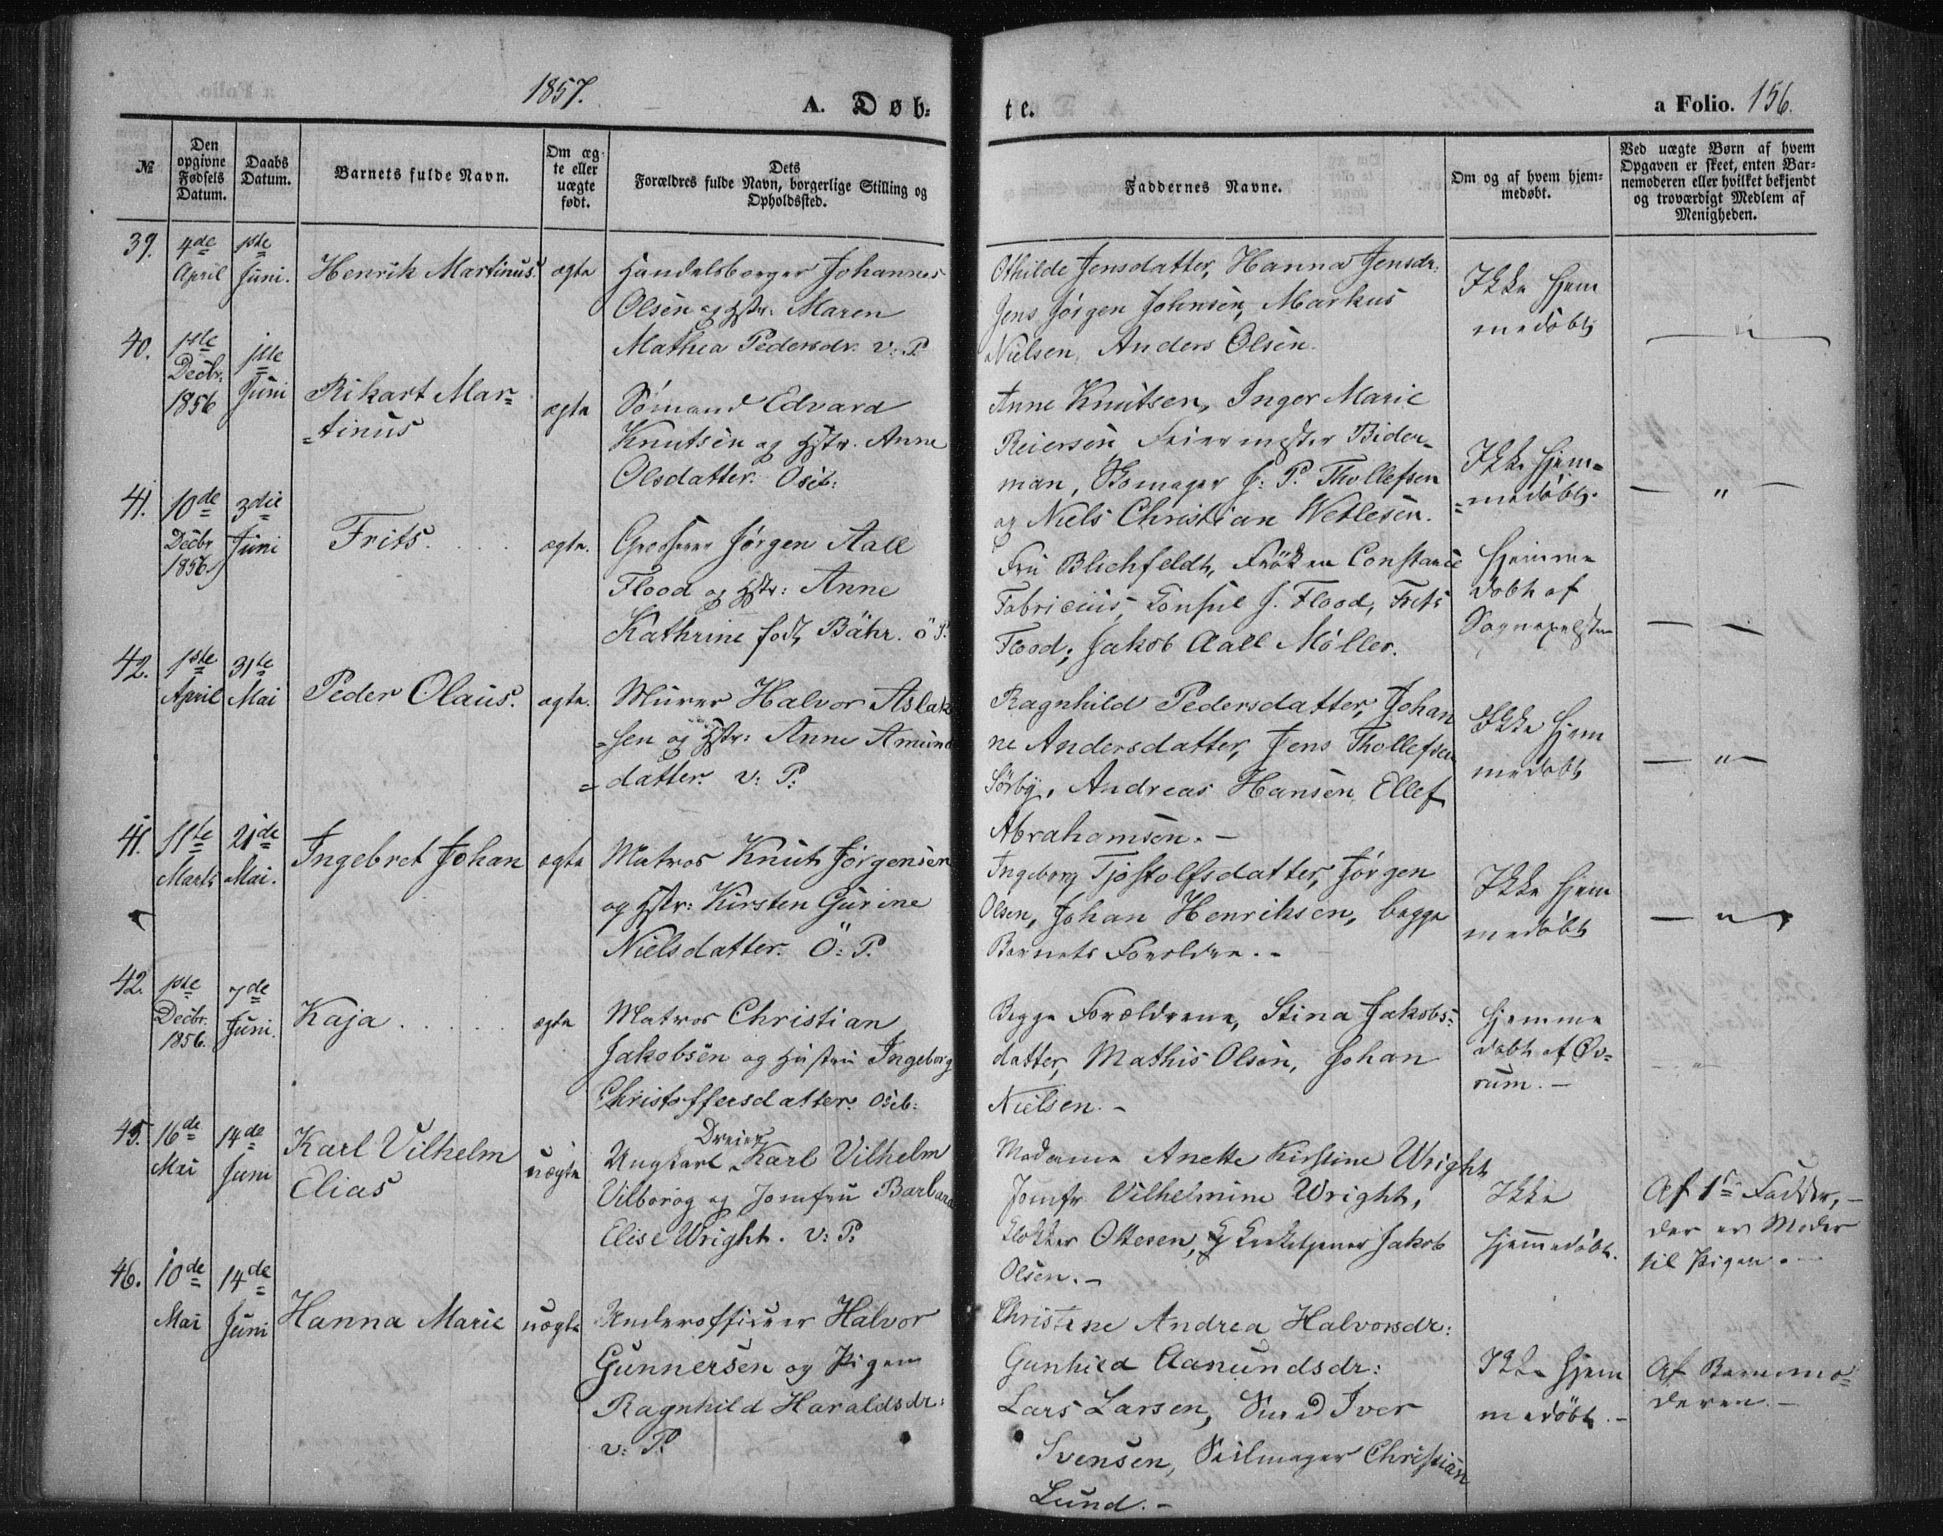 1857.
A. Døb=
te.
a Folio. 156.
№
Den opgivne Fødsels Datum.
Daabs Datum.
Barnets fulde Navn.
Om æg-te eller uægte født.
Dets Forældres fulde Navn, borgerlige Stilling og Opholdssted.
Faddernes Navne.
Om og af hvem hjem-medøbt.
Ved uægte Børn af hvem Opgaven er skeet, enten Bar-nemoderen eller hvilket bekjendt og troværdigt Medlem af Menigheden.
39.
4de April
1ste Juni.
Henrik Martinus.
ægte
Handelsborger Johannes
Olsen og Hstr: Maren
Mathea Pedersdr. v: P.
Othilde Jensdatter, Hanna Jensdr.
Jens Jørgen Johnsen, Markus
Nielsen, Anders Olsen.
Ikke hjem
medøbt
40.
1ste Decbr. 1856
1ste Juni
Rikart Mar=
=tinus
ægte
Sømand Edvard
Knutsen og Hstr. Anne
Olsdatter. Oseb:
Anne Knutsen, Inger Marie
Reiersen, Feiermester Bider-
man, Skomager J: P. Thollefsen
og Niels Christian Wetlesen.
Ikke hjem=
=medøbt.
— " —
41.
10de Decbr 1856.
3die Juni
Frits.
ægte.
Grosserer Jørgen Aall
Flood og Hstr: Anne
Kathrine født Bähr. ö P.
Fru Blichfeldt, Frøken Constance
Fabricius, Consul J. Flood, Frits
Flood, Jakob Aall Møller.
Hjemme
døbt af
Sognepresten
— —
42.
1ste April
31te Mai
Peder Olaus.
ægte.
Murer Halvor Aslak
=sen og Hstr: Anne Amund
=datter. v: P.
Ragnhild Pedersdatter, Johan
ne Andersdatter, Jens Thollefsen
Sörby, Andreas Hansen, Ellef
Abrahamsen. —
Ikke hjem
medøbt
— " —
41.
11te Marts
21de Mai.
Ingebret Johan
ægte
Matros Knut Jørgensen
og Hstr: Kirsten Gurine
Nielsdatter. Ö: P.
Ingeborg Tjostolfsdatter, Jørgen
Olsen, Johan Henriksen, begge
Barnets Forældre. -
Ikke hjem
medøbt
— " —
42.
1ste Decbr. 1856.
7de Juni.
Kaja
ægte
Matros Christian
Jakobsen og Hustru Ingeborg
Christoffersdatter. Oseb:
Begge Forældrene, Stina Jakobs=
datter, Mathis Olsen, Johan
Nielsen. -
Hjemme
døbt af Ov=
rum. —
— " —
45.
16de Mai
14de Juni
Karl Vilhelm
Elias
uægte
Dreier
Ungkarl Karl Vilhelm
Vilborog og Jomfru Barbara
Elise Wright. v: P.
Madame Anette Kirstine Wright
Jomfr Vilhelmine Wright,
Klokker Ottesen, Kirketjener Jakob
Olsen. -
Ikke
hjemmedøbt.
Af 1ste Fadder, —
der er Moder
til Pigen. —
46.
10de Mai
14de Juni
Hanna Marie
uægte
Underofficeer Halvor
Gunnersen og Pigen
Ragnhild Haraldsdr:
v: P.
Christine Andrea Halvorsdr:
Gunhild Aanundsdr:
Lars Larsen, Smed Iver
Svensen, Seilmager Christian
Lund. -
Ikke hjem
medøbt. -
Af Barnemo=
deren. -